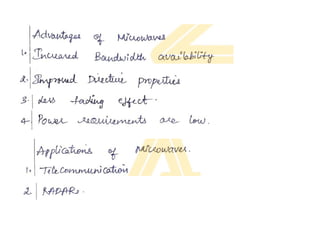 Advantages of Microwaves
1. Increased Bandwidth availability
2. Improved Directive properties
3. Less fading effect.
4. Power requirements are low.
Applications of Microwaves.
1. Telecommunication
2. RADARs.